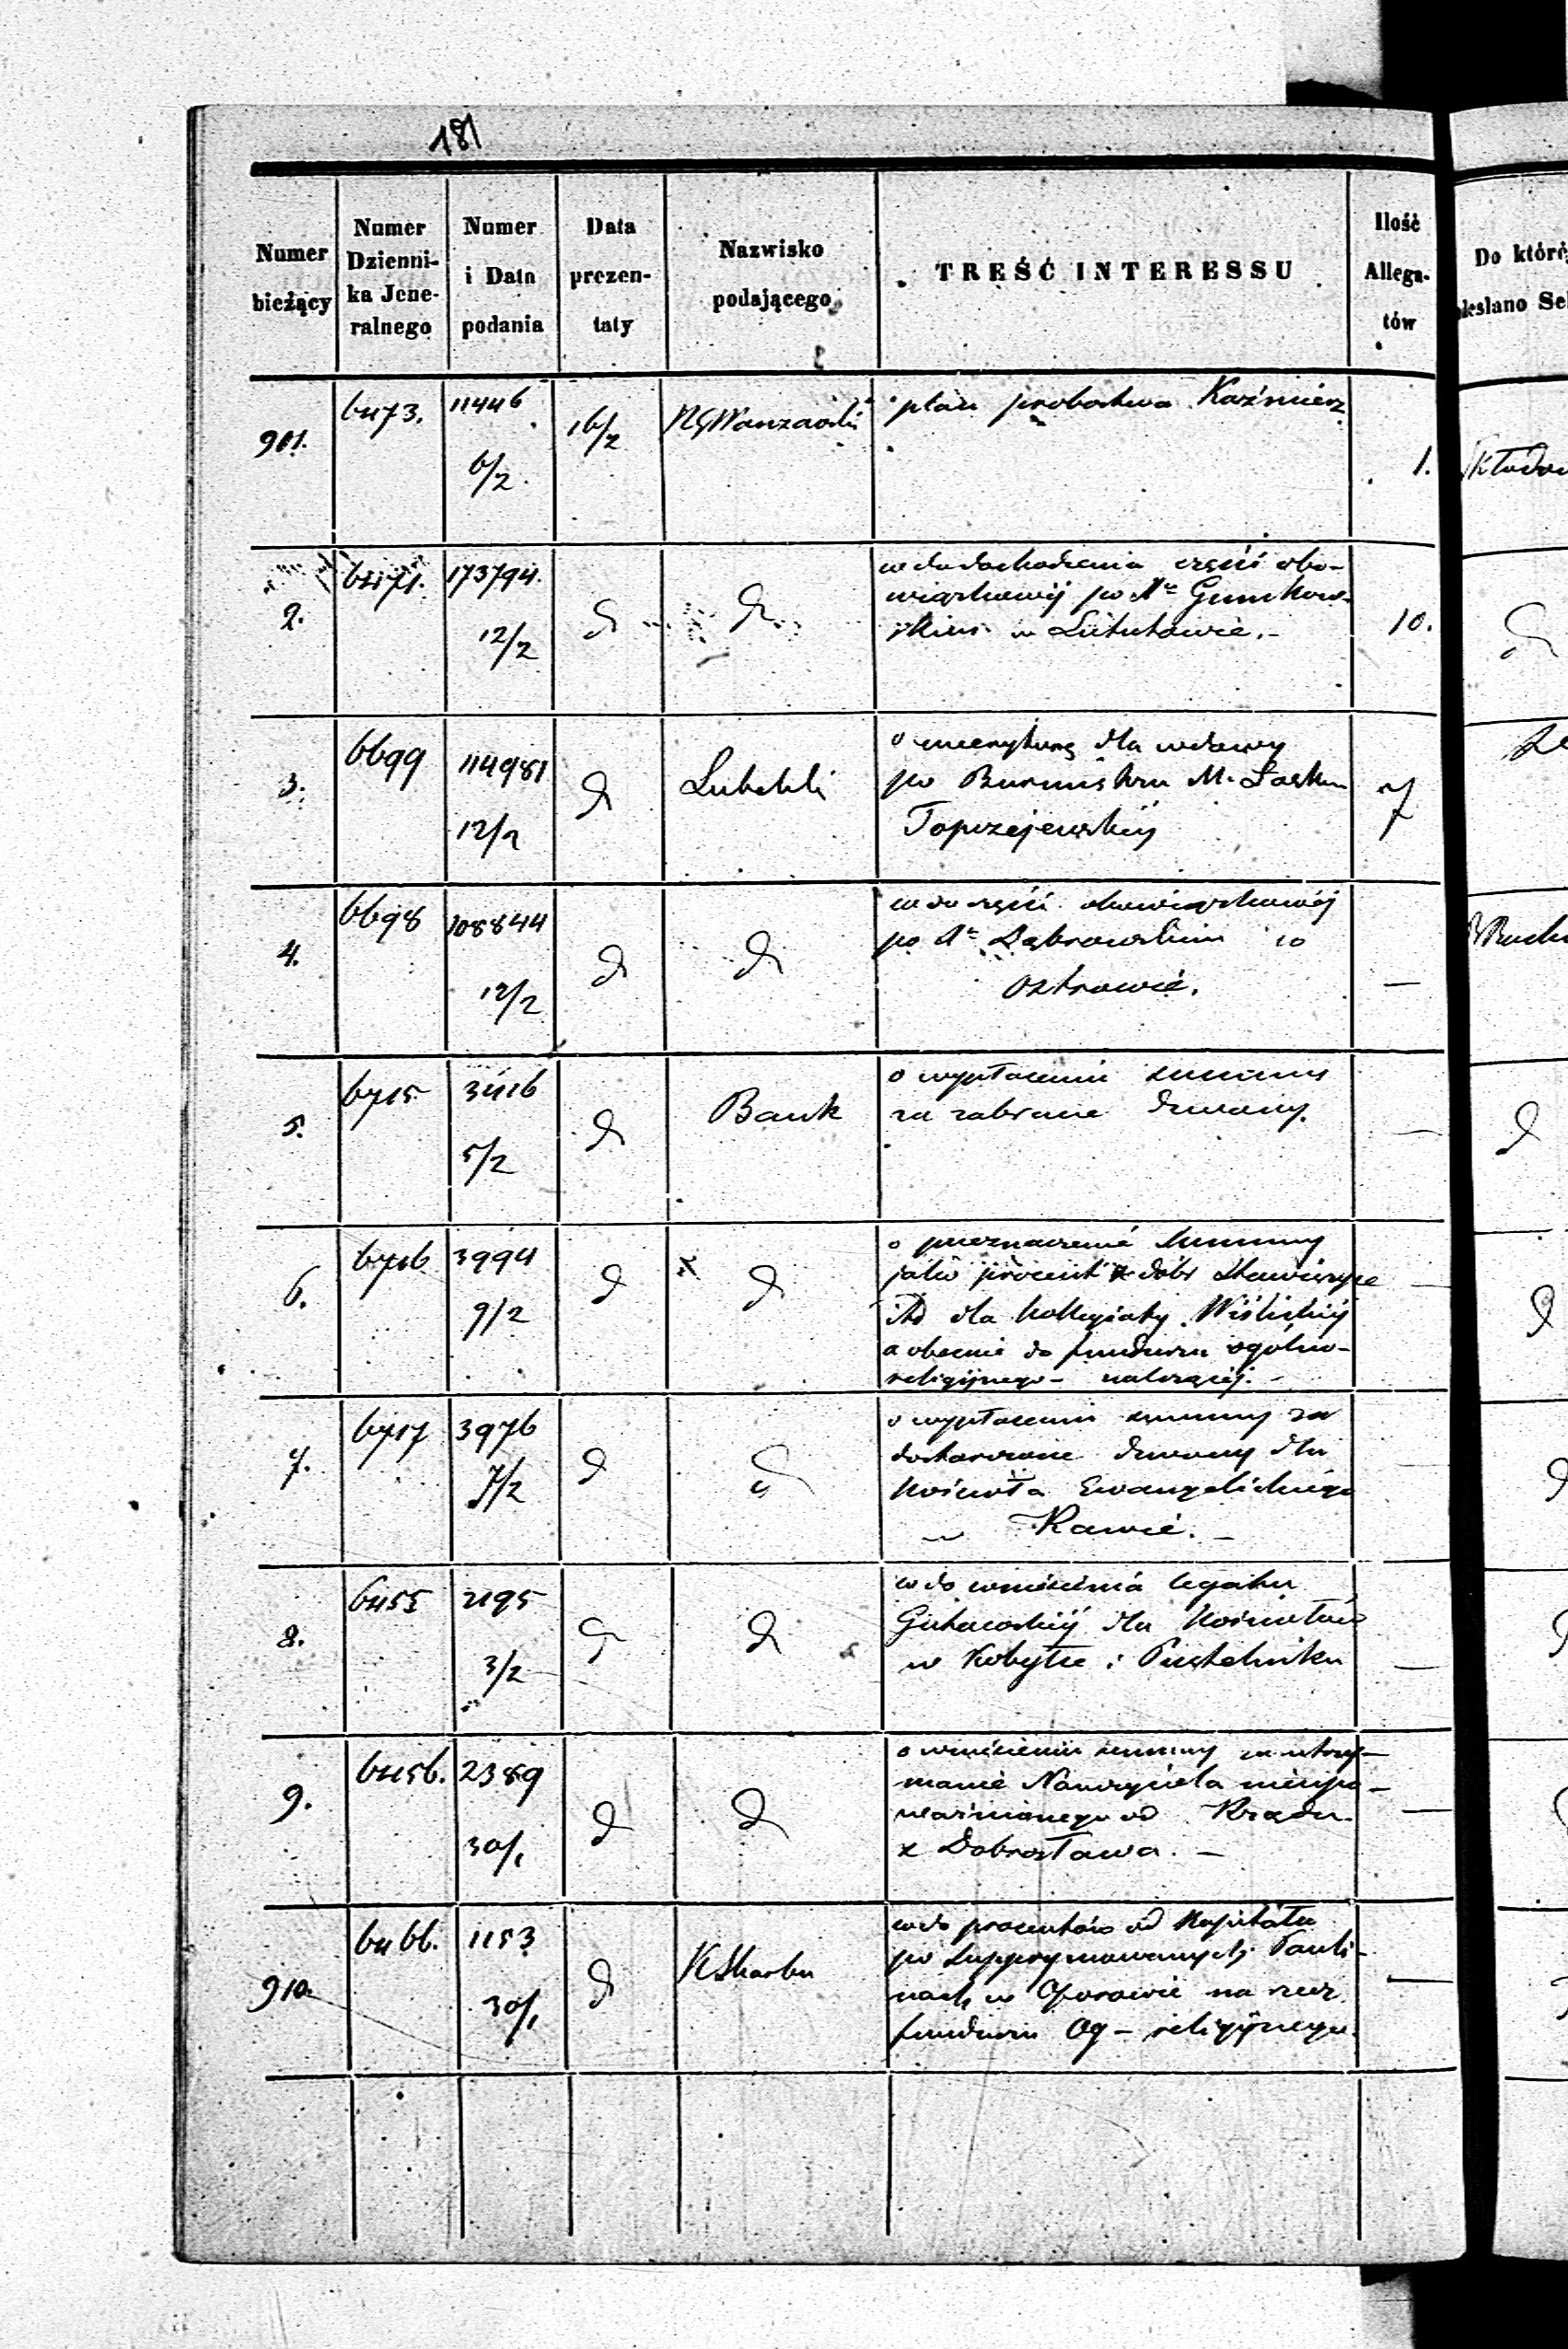 181
Numer bieżący
Numer Dzienni- ka Jene- ralnego
Numer i Data podania
Data prezen- taty
Nazwisko podającego
TREŚĆ INTERESSU
Ilość Allega- tów
Do któré
Se
901. 6473. 11446 6/2. 16/2 plan probostwa Kaźmierz 1.
2. 6471. 173794. 12/2 d d wdo dochodzenia części obo-
wiązkowéj po
w Lututowie. 10.
3. 6699 114981 12/2 d Lubelski o emeryturę dla wdowy
po Burmistrzu M. Łasku
7
4. 6698 108844 12/2 d d wdo części obowiązkowéj
po Dąbrowskim w
Ostrowie. —
5. 6715 3416 5/2 d Bank o wypłacenie summy
za zabrane dzwony. —
6. 6716 3994 9/2 d x d o przeznaczenie summy
jako procent z dóbr
itd dla Kollegiaty Wiślickiéj
a obecnie do funduszu ogólno-
religijnego - należącéj. —
7. 6717 3976 7/2 d d o wypłacenie summy za
dostarczone dzwony dla
Kościoła Ewangelickiego
w Rawie. —
8. 6455 2195 3/2 d d wdo wniesienia legatu
dla Kościołów
w Kobyłce i Pustelniku —
9. 6456. 2389 30/1 d d o wniesieniu summy na utrzy-
manie Nauczyciela nieupo-
ważnionego od Rządu
z Dobrosława. —
910. 6466. 1153 30/1 d K Skarbu wdo procentów od Kapitału
po supprymowanych Pauli-
nach w Oporowie na rzecz
funduszu Og - religijnego. —